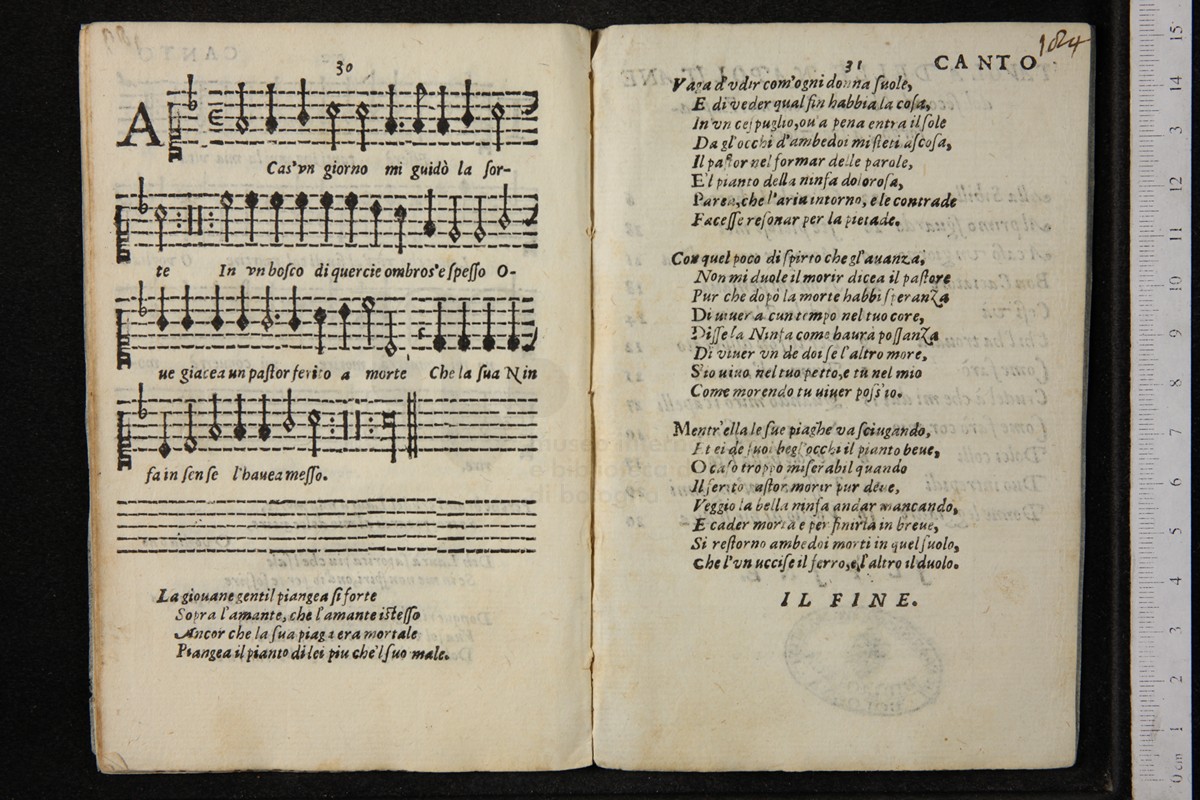 30
A
Cas'vn giorno mi guidò la sor-
te In vn bosco di quercie ombros'e spesso O-
ue giacea un pastor ferito a morte Che la sua Nin
fa in sen se l'hauea messo.
La giouane gentil piangea si forte
Sopra l'amante, che l'amante istesso
Ancor che la sua piaga era mortale
Piangea il pianto di lei piu che'l suo male.
31
CANTO
184
Vaga d'vdir com'ogni donna suole,
E di veder qual fin habbia la cosa,
In vn cespuglio, ou'a pena entra il sole
Da gl'occhi d'ambedoi mi steti ascosa,
Il pastor nel formar delle parole,
E'l pianto della ninfa dolorosa,
Parea, che l'aria intorno, e le contrade
Facesse resonar per la pietade.
Con quel poco di spirto che gl'auanza,
Non mi duole il morir dicea il pastore
Pur che dopò la morte habbi speranza
Di uiuer a cun tempo nel tuo core,
Disse la Ninfa come haurà possanza
Di viuer vn de doi se l'altro more,
S'io uiuo nel tuo petto, e tù nel mio
Come morendo tu uiuer poss'io.
Mentr'ella le sue piaghe va sciugando,
Et ei de suoi begl'occhi il pianto beue,
O caso troppo miserabil quando
Il ferito pastor morir pur deue,
Veggio la bella ninfa andar mancando,
E cader morta e per finirla in breue,
Si restorno ambedoi morti in quel suolo,
Che l'vn uccise il ferro, e l'altro il duolo.
IL FINE.